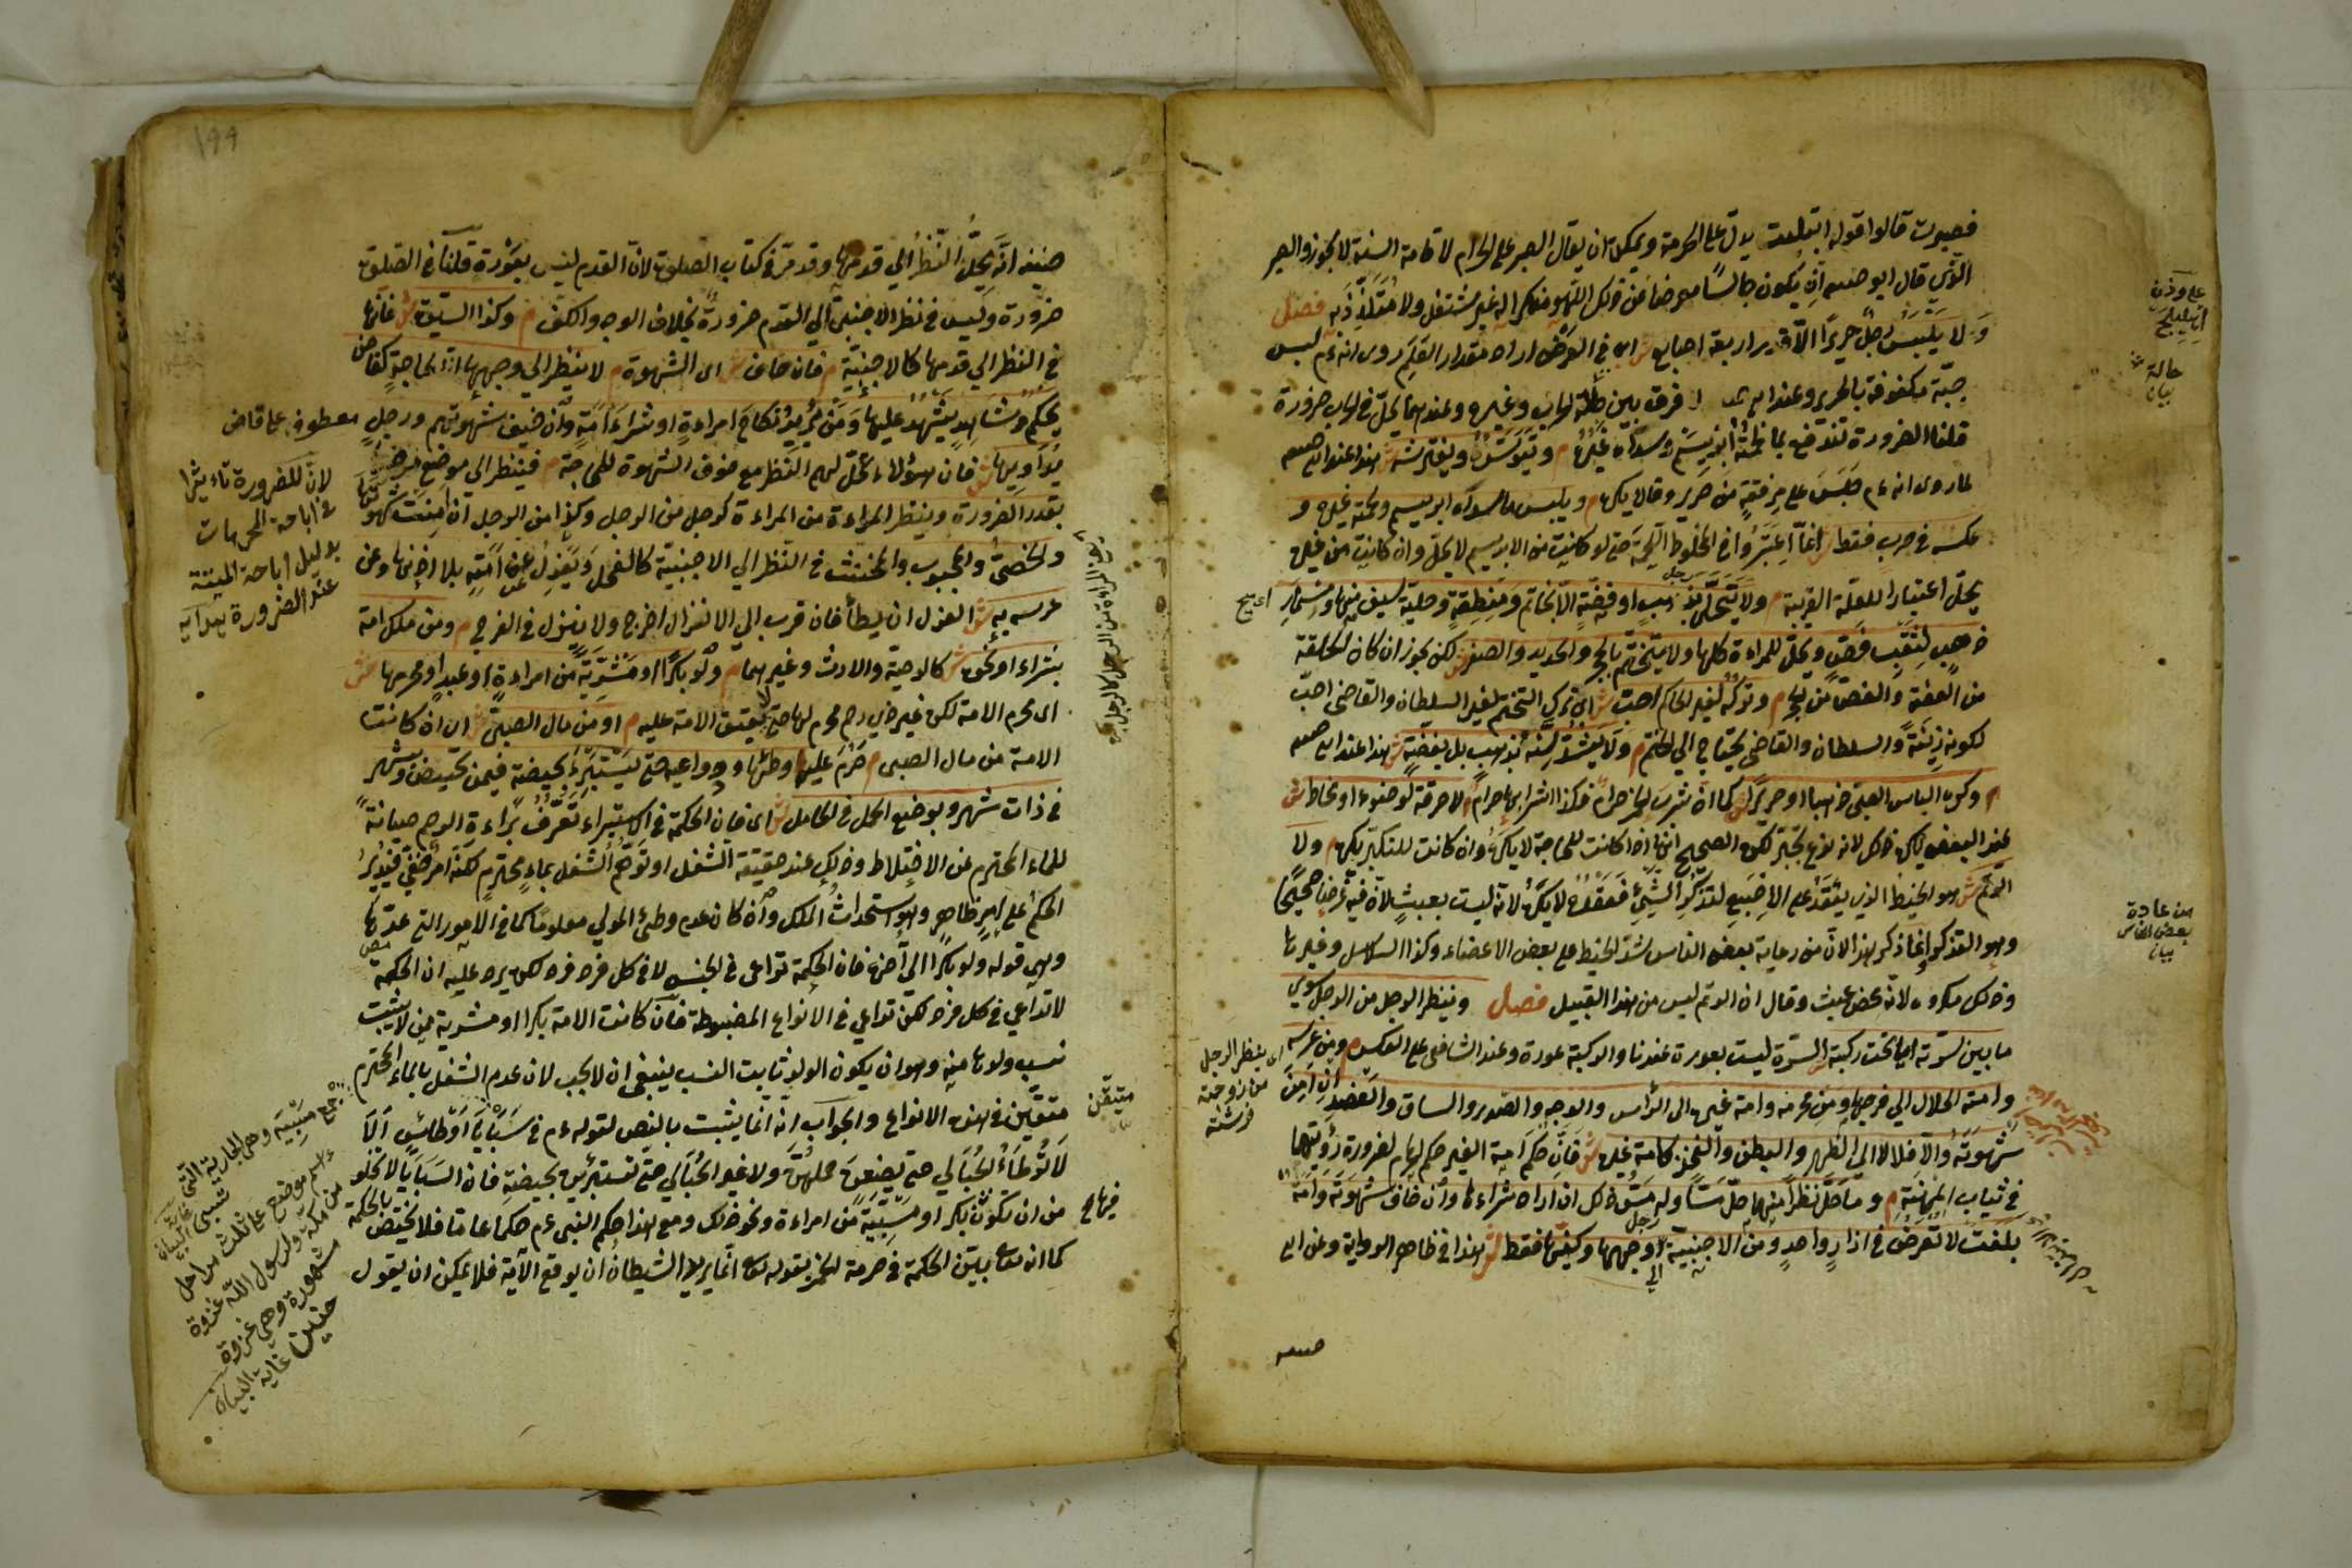 فصبرت قالوا قوله ابتليت يدل على الحرمة ويمكن ان يقال الصبر على الحرام لاقامة السنة لا يجوز والصبر
الذي قال ابو حنيفه ان يكون جالسا معرضا عن ذلك اللهو منكرا له غير مشتغل ولا متلذذ به فصل
ولا يلبس رجل حريرا الا قدر اربعة اصابع ش اى في العرض اراد مقدار العلم روى انه عم لبس
جبة مكفوفة بالحرير وعند ابي حنيفه لا فرق بين حالة الحرب وغيره وعندهما يحل في الحرب ضرورة
قلنا الضرورة تندفع بما لحمته ابريسم وسداه غيره م ويتوسده ويفترشه ش هذا عند ابي حنيفه
لما روى انه عم جلس على مرفقة من حرير وقالا يكره م ويلبس ما سداه ابريسم ولحمته غيره و
عكسه في حرب فقط ش انما اعتبروا في المخلوط اللحمة حتى لو كانت من الابريسم لا يحل وان كانت من غيره
يحل اعتبارا للعلة القريبة م ولا يتحلى رجل بذهب او فضة الا بخاتم ومنطقة وحلية سيف منها ومسمار
ذهب لثقب فص وحل للمراءة كلها ولا يتختم بالحجر والحديد والصفر ش لكن يجوز ان كان الحلقة
من الفضة والفص من الحجر م وتركه لغير الحاكم احب ش اى ترك التختم لغير السلطان والقاضى احب
لكونه زينة والسلطان والقاضى يحتاج الى الختم م ولا يشد سنه بذهب بل بفضة ش هذا عند ابي حنيفه
م وكره الباس الصبى ذهبا او حريرا ش كما ان شرب الخمر حرام فكذا اشرابها حرام م لا خرقة لوضوء او مخاط ش
عند البعض يكره ذلك لانه نوع تجبر لكن الصحيح انها اذا كانت للحاجة لا يكره وان كانت للتكبر يكره م ولا
الرتم ش هو الخيط الذي يعقد على الاصبع لتذكر الشىء فعقده لا يكره لانه ليست بعبث لان فيه غرضا صحيحا
وهو التذكر انما ذكر هذا لان من عادة بعض الناس شد الخيط على بعض الاعضاء وكذا السلاسل وغيرها
وذلك مكروه لانه محض عبث وقال ان الرتم ليس من هذا القبيل فصل وينظر الرجل من الرجل سوى
ما بين سرته الى تحت ركبته ش السرة ليست بعورة عندنا والركبة عورة وعند الشافعى على العكس م ومن عرسه
وامته الحلال الى فرجها ومن محرمه وامة غيره الى الرأس والوجه والصدر والساق والعضد ان امن
شهوته والا فلا لا الى الظهر والبطن والفخذ كامة غيره ش فان حكم امة الغير حكم المحارم لضرورة رؤيتها
في ثياب المهنة م وما حل نظرا منهما حل مسا وله مس ذلك ان اراد شراءها وان خاف شهوته وامة
بلغت لا تعرض في ازار واحد ومن الاجنبية الى وجهها وكفيها فقط ش هذا في ظاهر الرواية وعن ابى
حنيفه
من عادة
بعض الناس
بيان
اى ينظر الرجل
من زوجته
فرشته
١٩٩
حنيفه انه يحل النظر الى قدمها وقد مر في كتاب الصلوة لان القدم ليس بعورة قلنا في الصلوة
ضرورة وليس في نظر الاجنبى الى القدم ضرورة بخلاف الوجه والكف م وكذا السيدة ش فانها
في النظر الى قدمها كالاجنبية م فان خاف ش اى الشهوة م لا ينظر الى وجهها الا لحاجة كقاض
يحكم وشاهد يشهد عليها ومن يريد نكاح امراءة او شراء امة وان خيف شهوتهم ورجل
يداويها ش فان هؤلاء يحل لهم النظر مع خوف الشهوة للحاجة م فينظر الى موضع مرضها
بقدر الضرورة وينظر المراءة من المراءة كرجل من الرجل وكذا من الرجل ان امنت شهوتها
والخصى والمجبوب والمخنث في النظر الى الاجنبية كالفحل ويعزل عن امته بلا اذنها وعن
عرسه به ش العزل ان يطأ فان قرب الى الانزال اخرج ولا ينزل في الفرج م ومن ملك امة
بشراء او نحوه ش كالوصية والارث وغيرهما م ولو بكرا او مشرية من امراءة او عبد او محرمها ش
اى محرم الامة لكن غير ذي رحم محرم لها حتى لا يعتق الامة عليه م او من مال الصبى ش اى ان كانت
الامة من مال الصبى م حرم عليه وطئها ودواعيه حتى يستبرئ بحيضة فيمن تحيض وبشهر
في ذات شهر وبوضع الحمل في الحامل ش اى فان الحكمة في الاستبراء تعرف براءة الرحم صيانة
للماء المحترم عن الاختلاط وذلك عند حقيقة الشغل او توهم الشغل بماء محترم لكنه امر خفى فيدير
الحكم على امر ظاهر وهو استحداث الملك وان كان عدم وطئ المولى معلوما كما في الامور التي عدها
وهي قوله ولو بكرا الى آخره فان الحكمة تراعى في الجنس لا في كل فرد فرد لكن يرد عليه ان الحكمة
لا تراعى في كل فرد لكن تراعى في الانواع المضبوطة فان كانت الامة بكرا او مشرية ممن لا يثبت
نسب ولدها منه وهو ان يكون الولد ثابت النسب ينبغى ان لا يجب لان عدم الشغل بالماء المحترم
متيقن في هذه الانواع والجواب انه انما يثبت بالنص لقوله عم في سبايا اوطاس الا
لا توطاء الحبالى حتى يضعن حملهن ولا غير الحبالى حتى تستبرئن بحيضة فان السبايا لا تخلو
من ان تكون بكرا او مسبية من امراءة ونحو ذلك ومع هذا حكم النبى عم حكما عاما فلا يختص بالحكمة
كما انه تعالى بين الحكمة في حرمة الخمر بقوله تعالى انما يريد الشيطان ان يوقع الآية فلا يمكن ان يقول
معطوف على قاض
لان للضرورة تاءثيرا
في اباحة المحرمات
بدليل اباحة الميتة
عند الضرورة هدايه
متيقن
جمع مسبيه وهي الجارية التي تسبى
اسم موضع على ثلث مراحل
من مكة ولرسول الله غزوة
مشهورة وهي غزوة
حنين غاية البيان